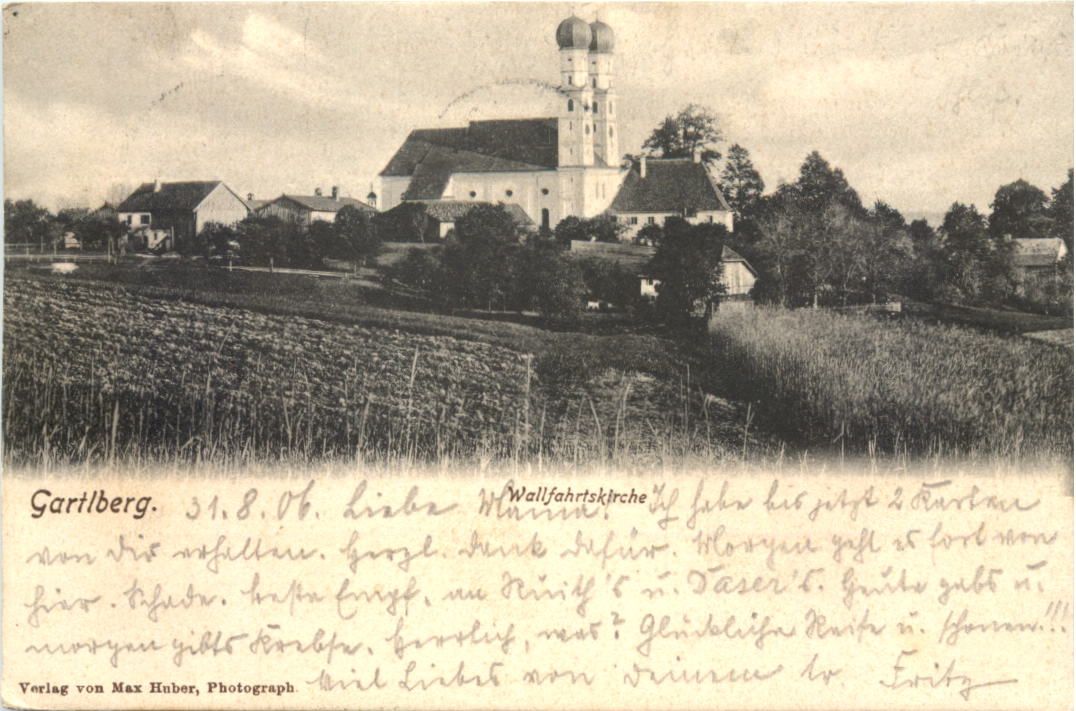 Gartlberg. Wallfahrtskirche
31.8.06. Liebe Mama! Ich habe bis jetzt 2 Karten
von Dir erhalten. Herzl. Dank dafür. Morgen geht es fort von
hier. Schade. beste Empf. an u. Daser's. Heute gabs u.
morgen gibts Krebse. Herrlich, was? Glückliche Reise u. schönen!!!
Viel Liebes von Deinem tr. Fritz
Verlag von Max Huber, Photograph